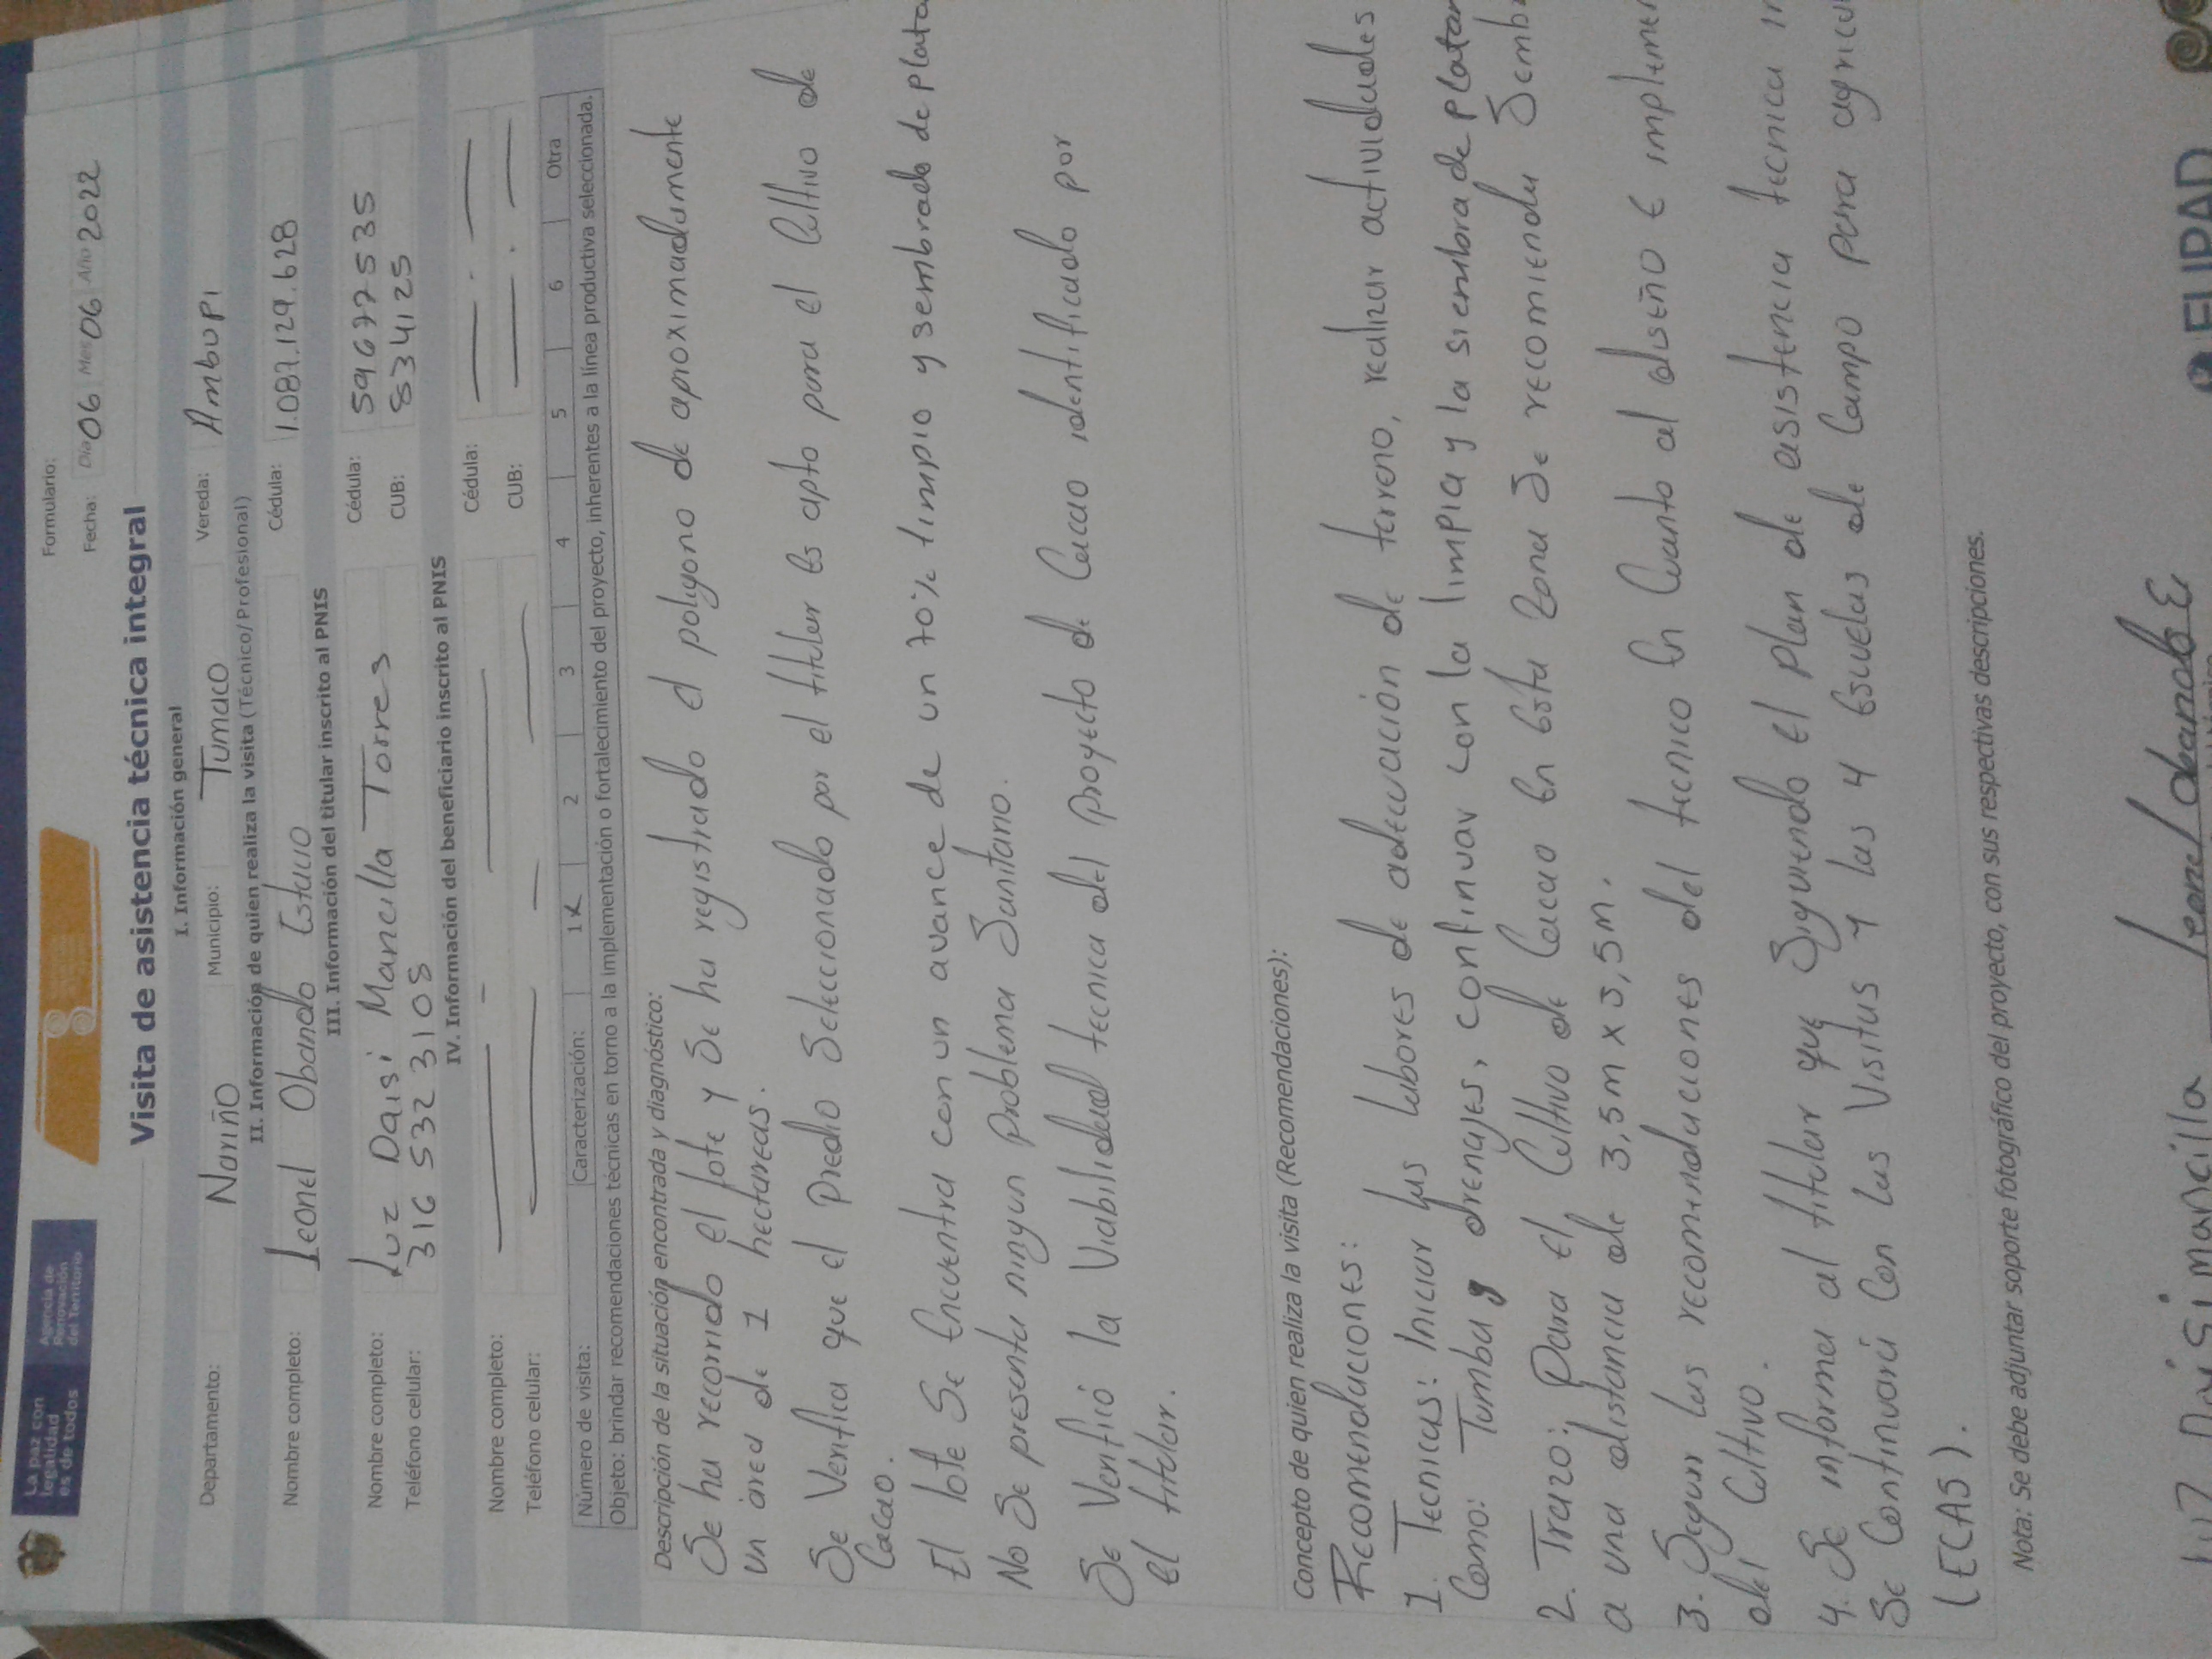 La paz con
legalidad
es de todos
Agencia de
Renovación
del Territorio
Formulario:
Fecha: Día 06 Mes 06 Año 2022
Visita de asistencia técnica integral
I. Información general
Departamento: Nariño Municipio: Tumaco Vereda: Ambupi
II. Información de quien realiza la visita (Técnico/Profesional)
Nombre completo: Leonel Obando Estacio Cédula: 1.087.129.628
III. Información del titular inscrito al PNIS
Nombre completo: Luz Daisi Mancilla Torres Cédula: 59677535
Teléfono celular: 316 532 3105 CUB: 834125
IV. Información del beneficiario inscrito al PNIS
Nombre completo: Cédula:
Teléfono celular: CUB:
Número de visita: Caracterización: 1 X 2 3 4 5 6 Otra
Objeto: brindar recomendaciones técnicas en torno a la implementación o fortalecimiento del proyecto, inherentes a la línea productiva seleccionada.
Descripción de la situación encontrada y diagnóstico:
Se ha recorrido el lote y Se ha registrado el polygono de aproximadamente
un área de 1 hectareas.
Se Verifica que el Predio Seleccionado por el titular Es apto para el Cultivo de
Cacao.
El lote Se Encuentra con un avance de un 70% limpio y sembrado de plata
No Se presenta ningun problema Sanitario.
Se Verificó la Viabilidad tecnica del proyecto de Cacao identificado por
el titular.
Concepto de quien realiza la visita (Recomendaciones):
Recomendaciones:
1. Tecnicas: Iniciar las labores de adecuación de terreno, realizar actividades
Como: Tumba y drenajes, continuar con la limpia y la siembra de platan
2. Trazo: Para el Cultivo de Cacao En Esta Zona Se recomienda Semb
a una distancia de 3,5m x 3,5m.
3. Segun las recomendaciones del tecnico En Cuanto al diseño E implemen
del Cultivo.
4. Se informa al titular que Siguiendo el plan de asistencia tecnica in
Se Continuará Con las Visitas y las 4 Escuelas de Campo para agricul
(ECAS).
Nota: Se debe adjuntar soporte fotográfico del proyecto, con sus respectivas descripciones.
Luz Daisi mancilla Leonel Obando E